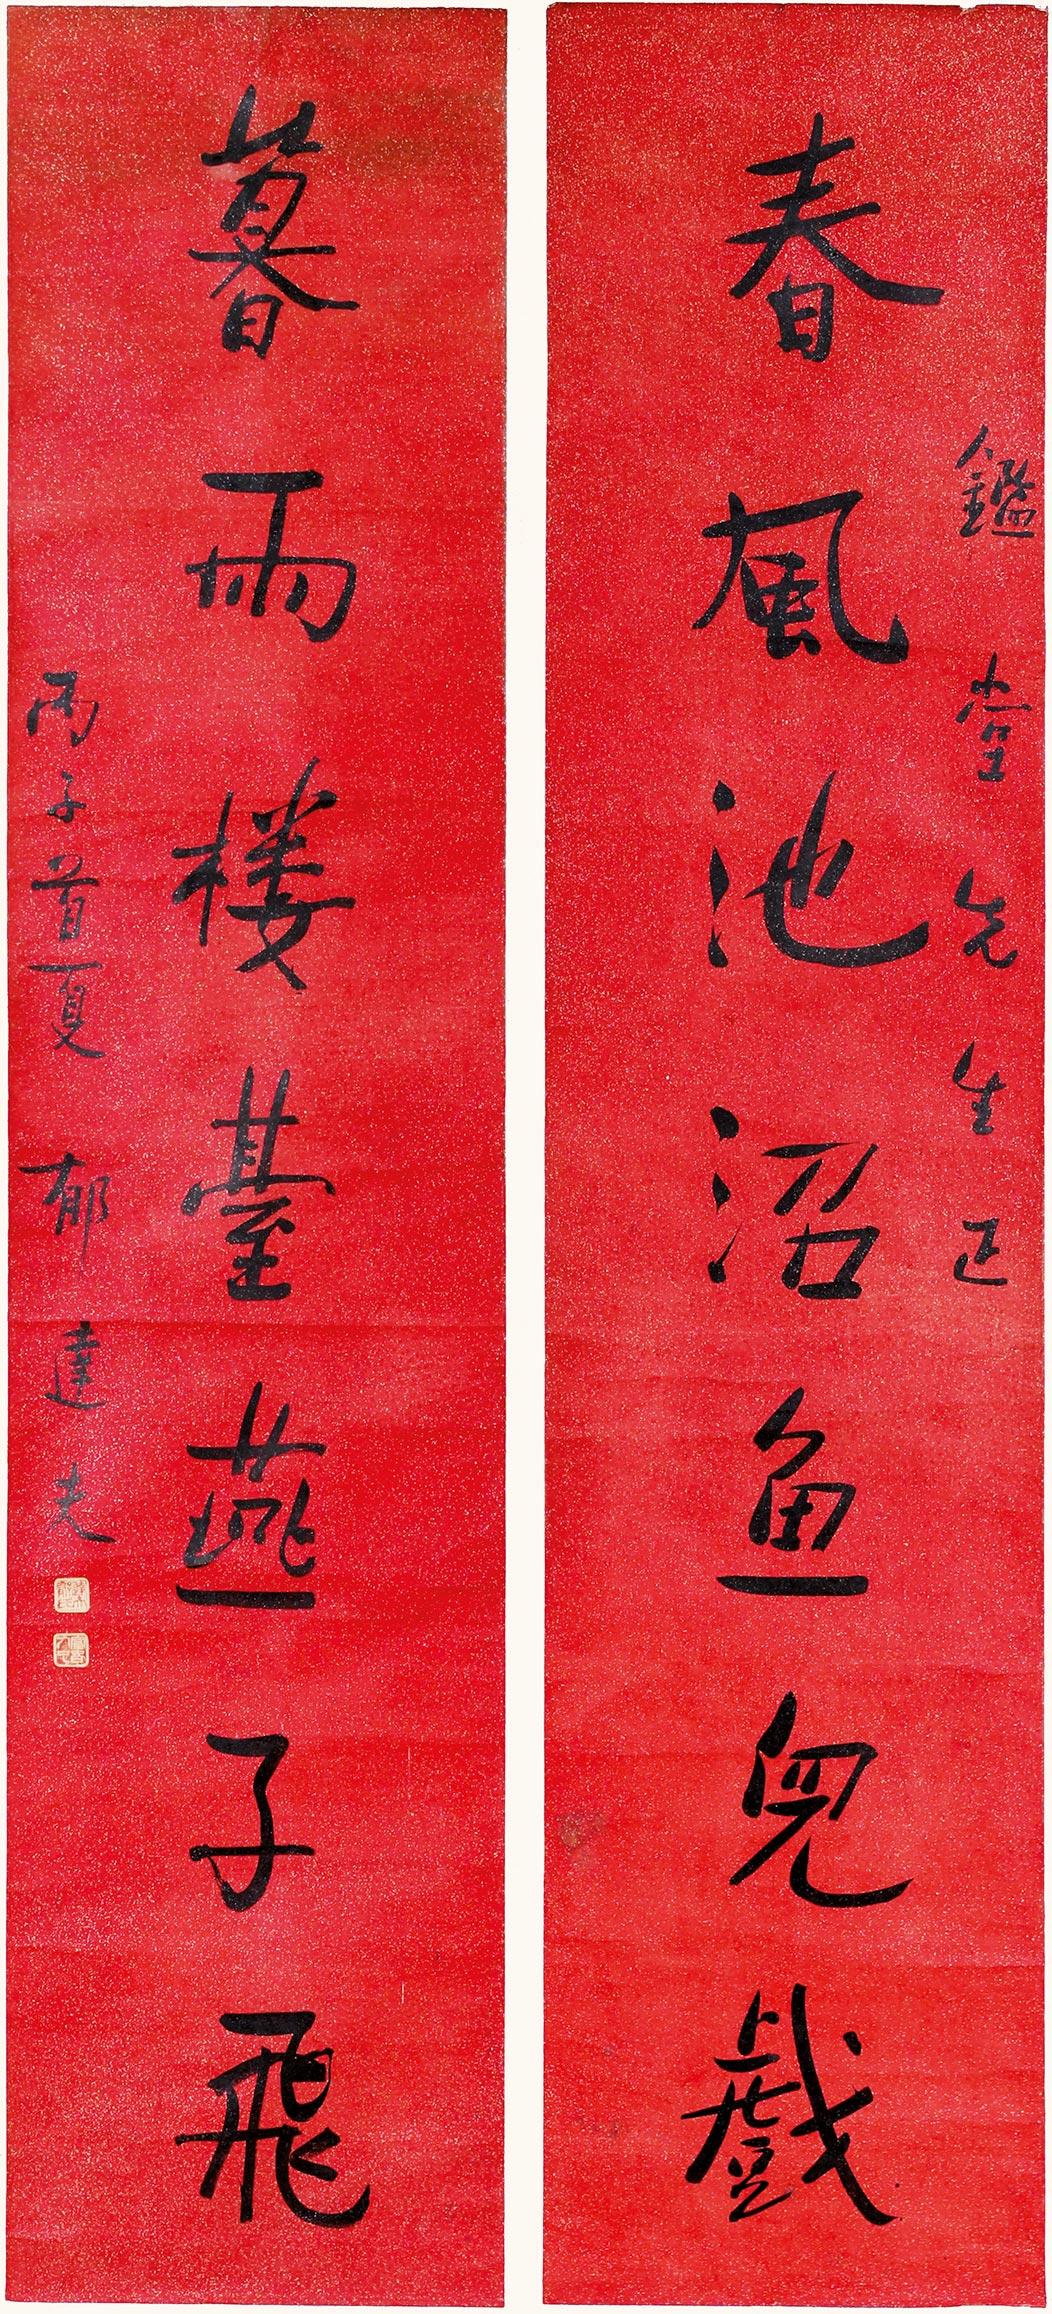 春風池沼鱼兒戲
鑑堂先生正
暮雨楼臺燕子飛
丙子首夏 郁達夫